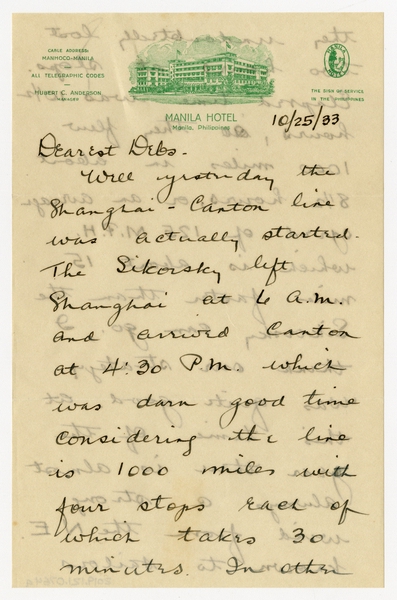 CABLE ADDRESS:
MANHOCO-MANILA
ALL TELEGRAPHIC CODES
HUBERT C. ANDERSON
MANAGER
MANILA HOTEL
Manila, Philippines
THE SIGN OF SERVICE
IN THE PHILIPPINES
10/25/33
Dearest Debs-
Well yesterday the
Shanghai-Canton line
was actually started.
The Sikorsky left
Shanghai at 6 A.M.
and arrived Canton
at 4:30 P.M. which
was darn good time
considering the line
is 1000 miles with
four stops each of
which takes 30
minutes. In other